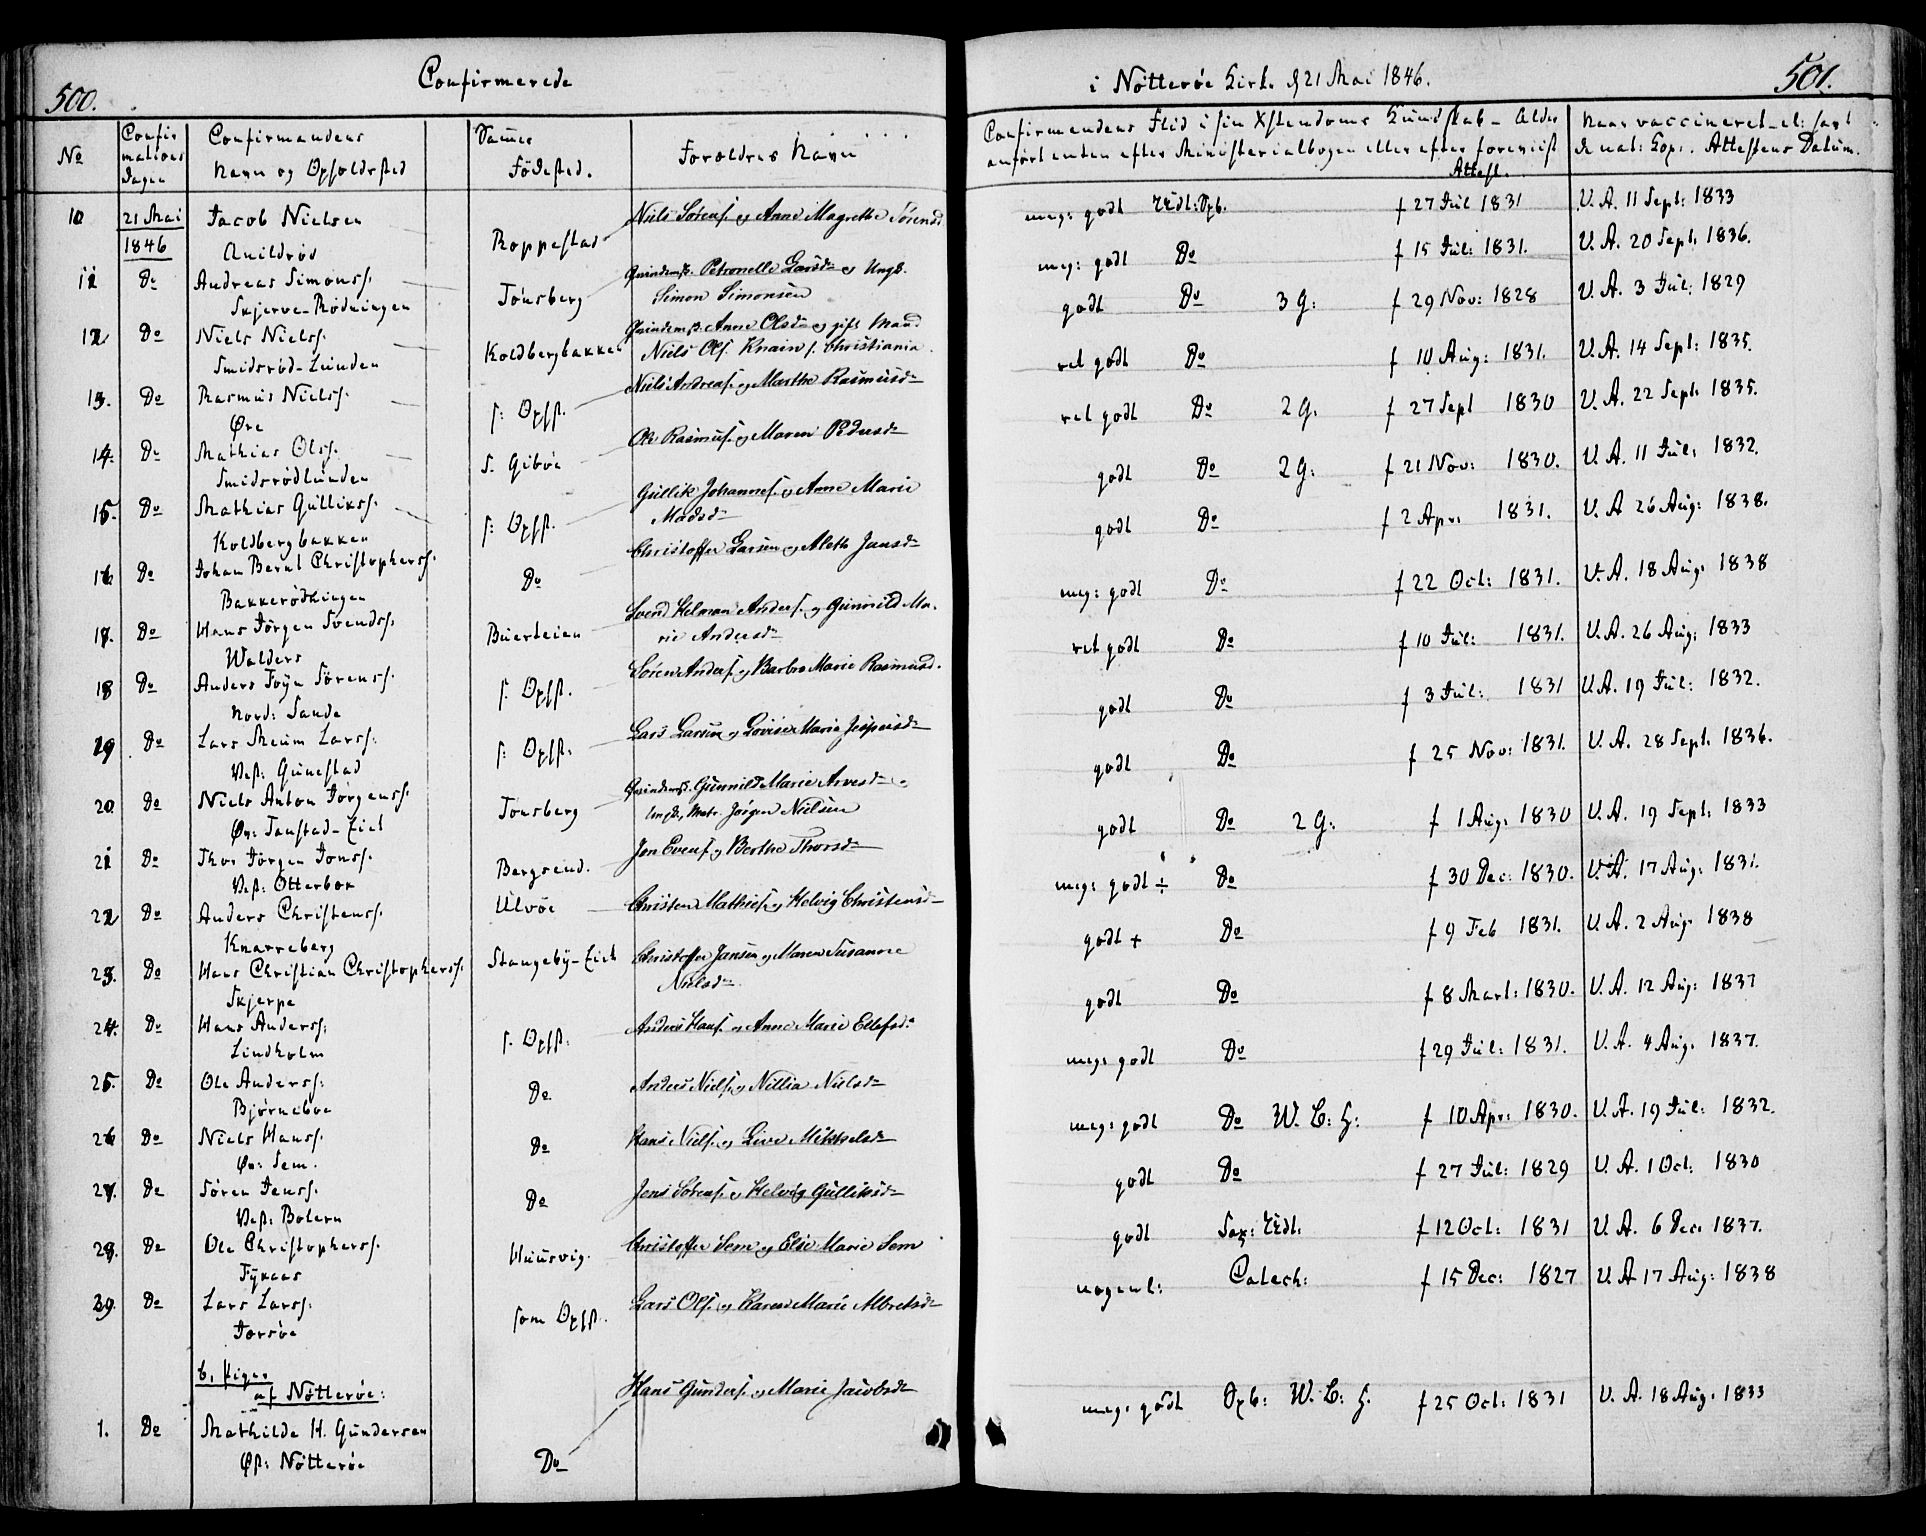 500.
Confirmerede
i Nötteröe Kirke d. 21 Mai 1846.
501.
No
Confir
mations
Dagen
Confirmandens
Navn og Opholdssted
Sammes
Födested.
Forældres Navn
Confirmandens Flid i sin Xstendoms Kundskab - Alder
anfört enten efter Ministerialbogen eller efter foreviist
Attest.
Naar vaccineret
Attestens Datum.
10 21 Mai 1846 Jacob Nielsen Roppestad Niels Sörens. og Anne Magrethe Sörensd meg: godt f 27 Jul 1831 V. A. 11 Sept: 1833
11 Do Andreas Simonss. Tönsberg Qvindemsk. Petronelle Larsd og Ungk. meg: godt Do f 15 Jul: 1831. V. A. 20 Sept. 1836.
Skjerve-Rödningen Simon Simonsen
12 Do Niels Nielss. Koldbergbakken Qvindemsk. Anne Olsd og gift Mand godt Do 3 G: f 29 Nov: 1828 V. A. 3 Jul; 1829
Smidsröd-Lunden Niels Ols. Christiania
13. Do Rasmus Nielss. s: Opst. Niels Andreas. og Marthe Rasmusd ret godt Do f 10 Aug: 1831. V. A. 14 Sept: 1835.
Öre
14. Do Mathias Olss. Ole Rasmus. og Maren Pedersd ret godt Do 2 G. f 27 Sept 1830 V. A. 22 Sept. 1835.
Smidsrödlunden
15. Do Mathias Gullikss. s: Opst. Gullik Johannes. og Anne Marie godt Do 2 G: f 21 Nov: 1830. V. A. 11 Jul; 1832.
Koldbergbakken Madsd
16 Do Johan Bernt Christopherss. Do Christoffer Larsen og Alethe Jansd godt Do f 2 Apr: 1831. V. A 26 Aug: 1838.
Bakkerödningen
17. Do Hans Jörgen Svendss. Buerleien Svend Helman Anders. og Gunnild Ma- meg: godt Do f 22 Oct: 1831. V. A. 18 Aug: 1838
Walders rie Andersd
18 Do Anders Foyn Sörenss. s. Opst. Sören Anders. og Barbro Marie Rasmusd. ret godt Do f 10 Jul: 1831. V. A. 26 Aug: 1833
Nord: Sande
19 Do Lars Larss. s: Opst. Lars Larsen og Lovise Marie Jespersd godt Do f 3 Jul: 1831 V. A. 19 Jul: 1832.
Vest: Gunestad
20. Do Niels Anton Jörgenss. Tönsberg Qvindemsk. Gunnild Marie Arvesd og godt Do f 25 Nov: 1831. V. A. 28 Sept. 1836.
Matr. Jörgen Nielsen
21 Do Thor Jörgen Jonss. Bergsend. Jon Evens. og Berthe Thorsd godt Do 2 G: f 1 Aug: 1830 V. A. 19 Sept. 1833
Vest: Otterbek
22 Do Anders Christenss. Ulvöe Christen Mathias. og Helvig Christensd meg: godt ÷ Do f 30 Dec: 1830. V. A. 17 Aug: 1831.
Knarreberg
23. Do Hans Christian Christopherss. Stangeby-Eiet Christoffer Jansen og Maren Susanne godt + Do f 9 Feb 1831. V. A. 2 Aug. 1838
Skjerpe Nielsd
24. Do Hans Anderss. s. Opst: Anders Hans. og Anne Marie Ellefsd. godt Do f 8 Mart: 1830. V. A. 12 Aug: 1837
Lindholm
25. Do Ole Anderss: Do Anders Niels. og Nillia Nielsd meg: godt Do f 29 Jul: 1831. V. A. 4 Aug. 1837.
Björneboe
26 Do Niels Hanss. Do Hans Niels. og Live Mikkelsd meg: godt Do W. B: H: f 10 Apr: 1830. V. A. 19 Jul: 1832.
Öv: Sem.
27. Do Sören Jenss. Do Jens Sörens. og Helvig Gulliksd godt Do f 27 Jul: 1829 V. A. 1 Oct: 1830
Vest: Bolern
28. Do Ole Christopherss. Huusvig. Christoffer Sem og Else Marie Sem godt f 12 Oct: 1831 V. A. 6 Dec. 1837.
Fykaas
29. Do Lars Larss: som Opst. Lars Ols. og Karen Marie Albretsd nogenl: Catech: f 15 Dec: 1827 V. A 17 Aug: 1838
Torsöe
b, Piger
af Nötteröe:
1. Do Mathilde H. Gundersen Do Hans Gunders. og Marie Jacobsd meg: godt W. B: H. f 25 Oct: 1831 V. A. 18 Aug. 1833
Öst: Nötteröe